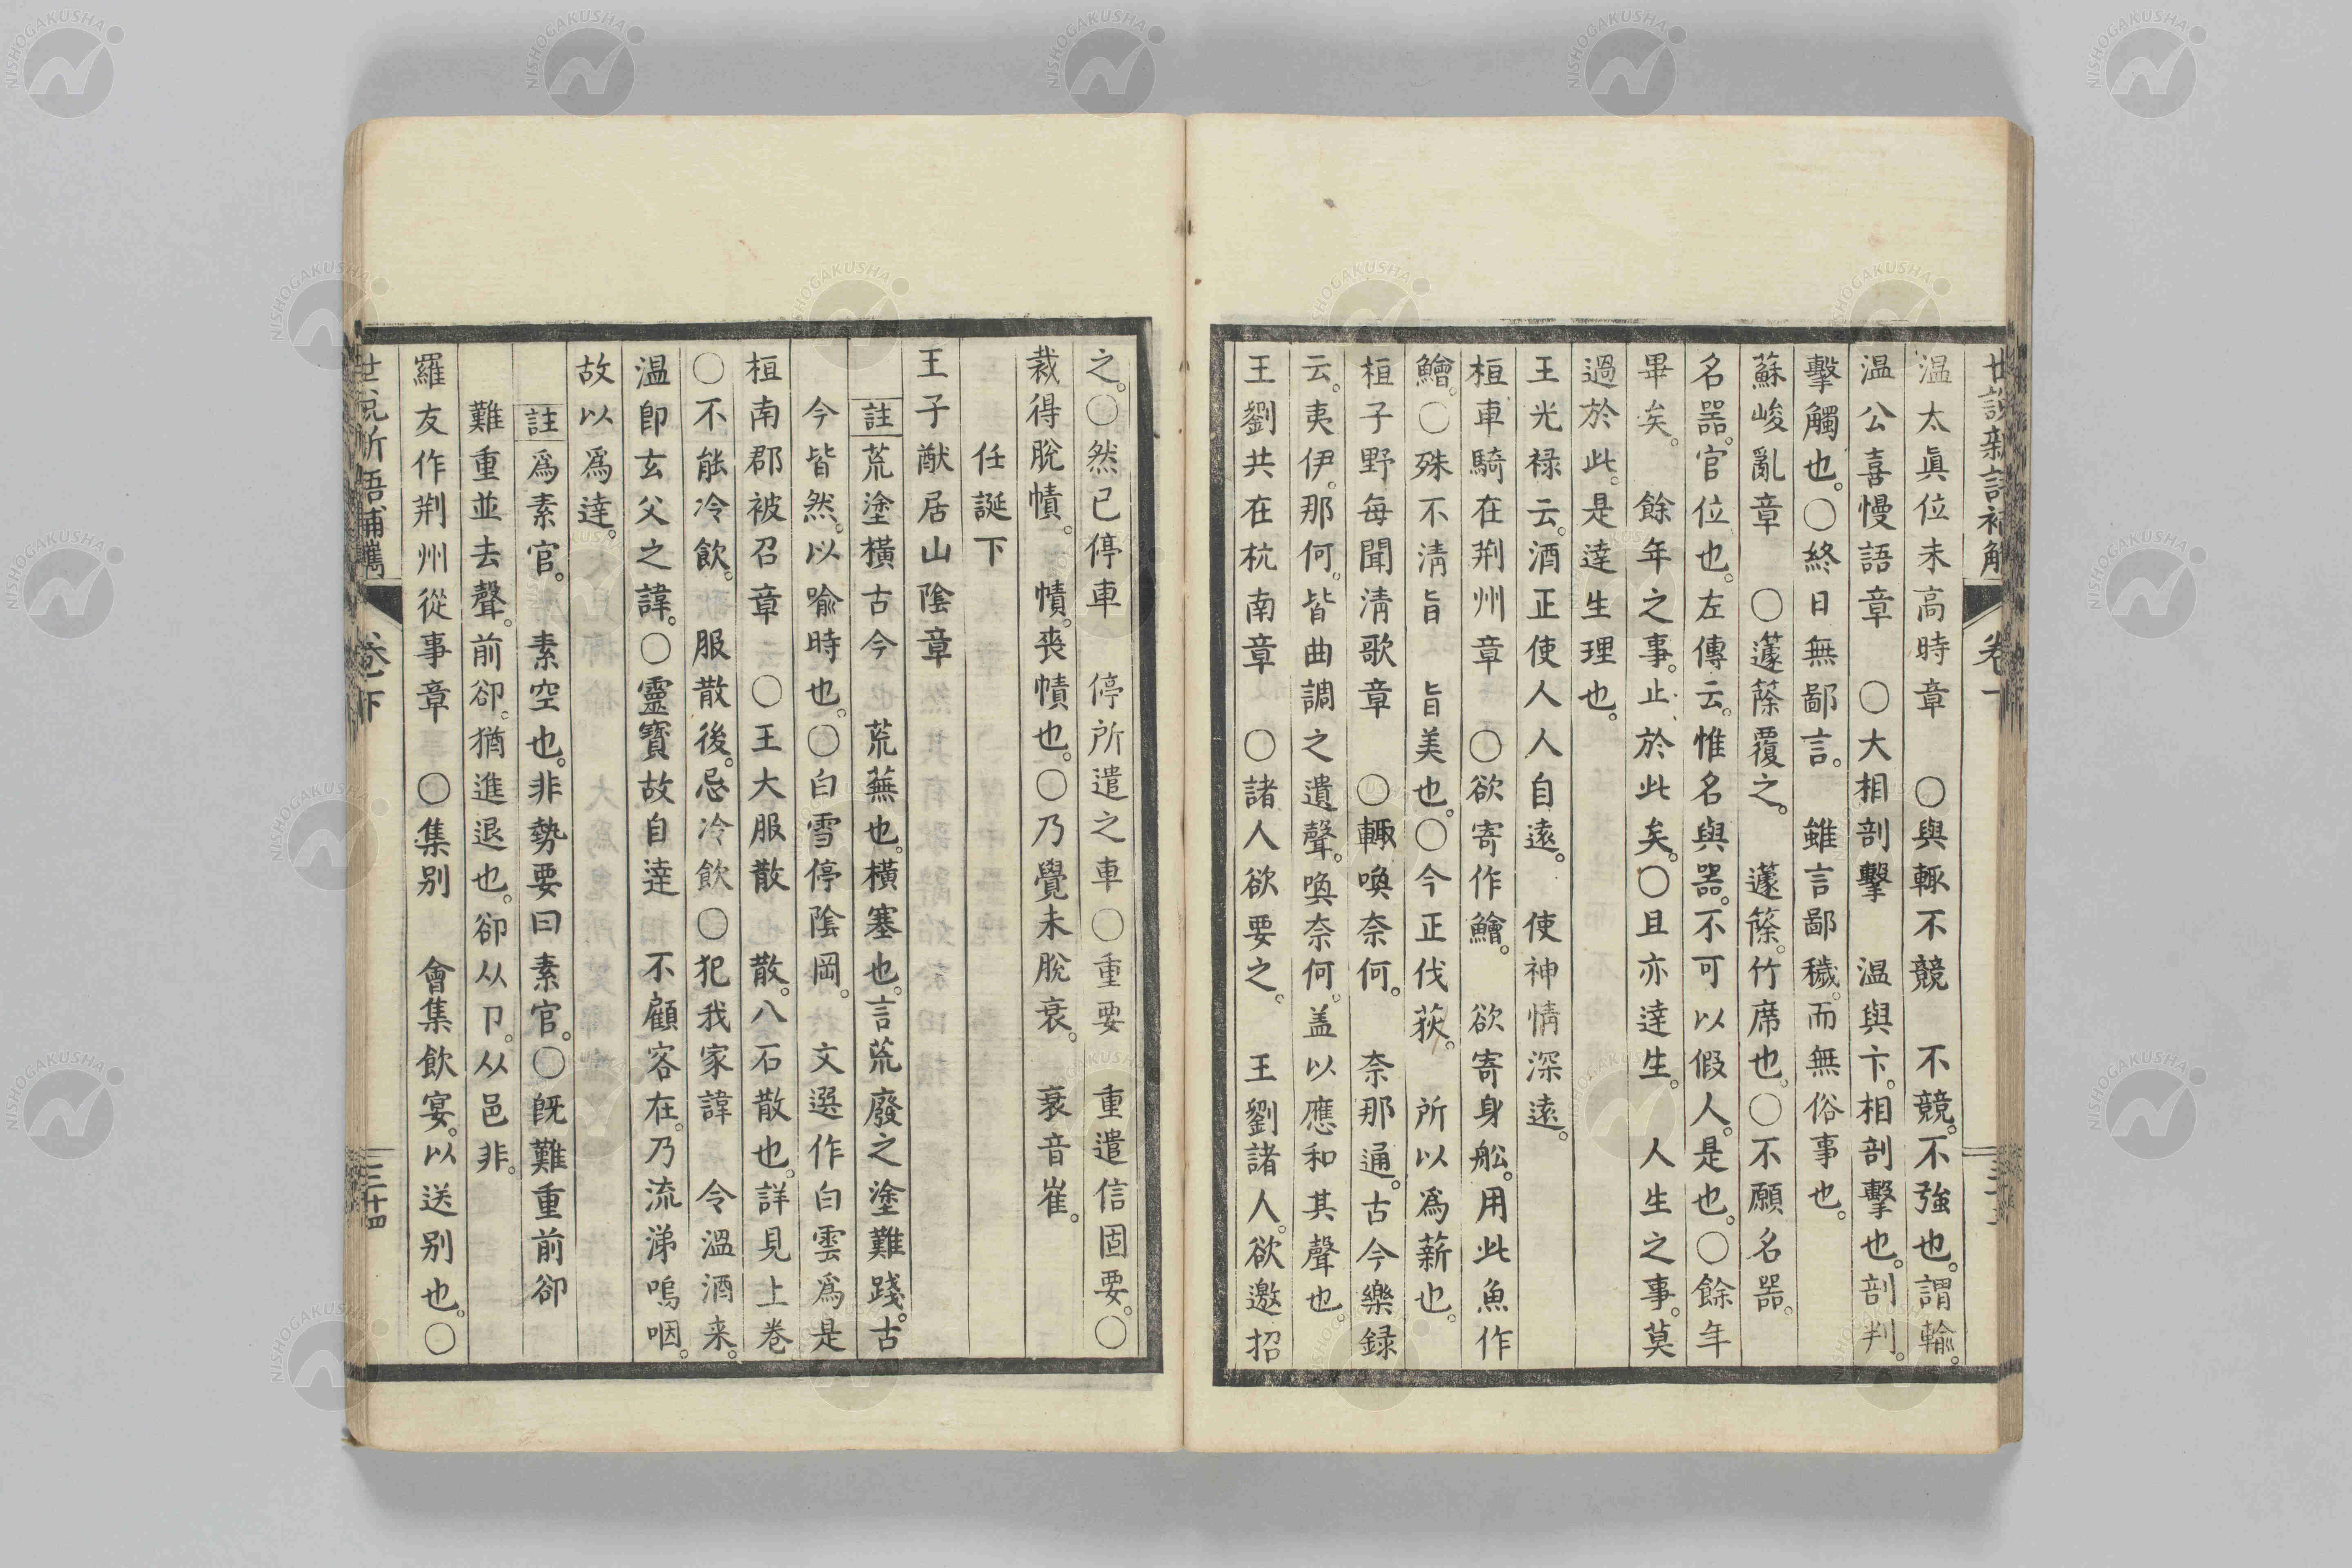 温太眞位未高時章　〇與輒不競　不競。不強也。謂輸。
温公喜慢語章　〇大相剖擊　温與卞。相剖擊也。剖判。
擊觸也。〇終日無鄙言。　雖言鄙穢。而無俗事也。
蘇峻亂章　〇蘧蒢覆之。　蘧蒢。竹席也。〇不願名器。
名器。官位也。左傳云。惟名與器。不可以假人。是也。〇餘年
畢矣。　餘年之事。止於此矣。〇且亦達生。　人生之事。莫
過於此。是達生理也。
王光禄云。酒正使人人自遠。　使神情深遠。
桓車騎在荆州章　〇欲寄作鱠。　欲寄身舩。用此魚作
鱠。〇殊不淸旨　旨美也。〇今正伐荻。　所以爲薪也。
桓子野每聞淸歌章　〇輒喚奈何。　奈那通。古今樂録
云。夷伊。那何。皆曲調之遺聲。喚奈何。盖以應和其聲也。
王劉共在杭南章　〇諸人欲要之。　王劉諸人。欲邀招
之。〇然已停車　停所遣之車〇重要　重遣信固要。〇
裁得脫幘。　幘。喪幘也。〇乃覺未脫衰。　衰音崔。
任誕下
王子猷居山陰章
註荒塗横古今　荒蕪也。横塞也。言荒廢之塗難踐。古
今皆然。以喩時也。〇白雪停陰岡。　文選作白雲爲是
桓南郡被召章　〇王大服散　散。八石散也。詳見上巻
〇不能冷飮。　服散後。忌冷飮〇犯我家諱　令溫酒来。
温卽玄父之諱。〇靈寶故自達　不顧客在。乃流涕嗚咽。
故以爲達。
註爲素官。　素空也。非勢要曰素官。〇既難重前卻
難重並去聲。前卻。猶進退也。卻从卩。从邑非。
羅友作荆州從事章　〇集别　會集飮宴。以送别也。〇
卷下
三十四